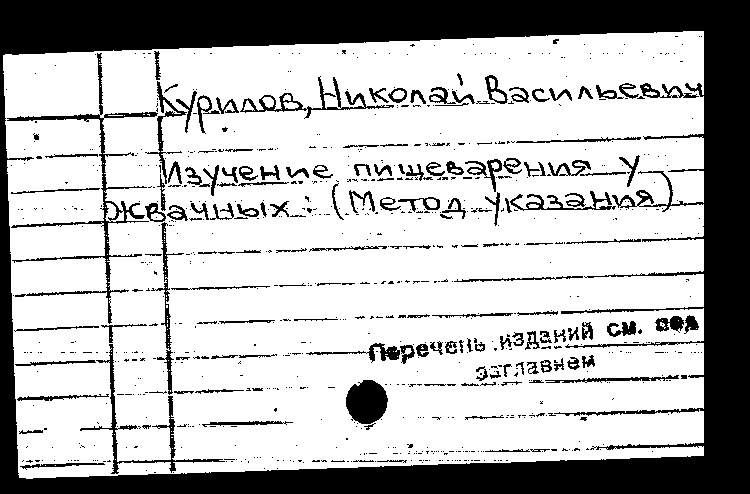 Курилов, Николай Васильевич
Изучение пищеварения у
жвачных: (Метод указания).
Перечень изданий см. под
заглавием